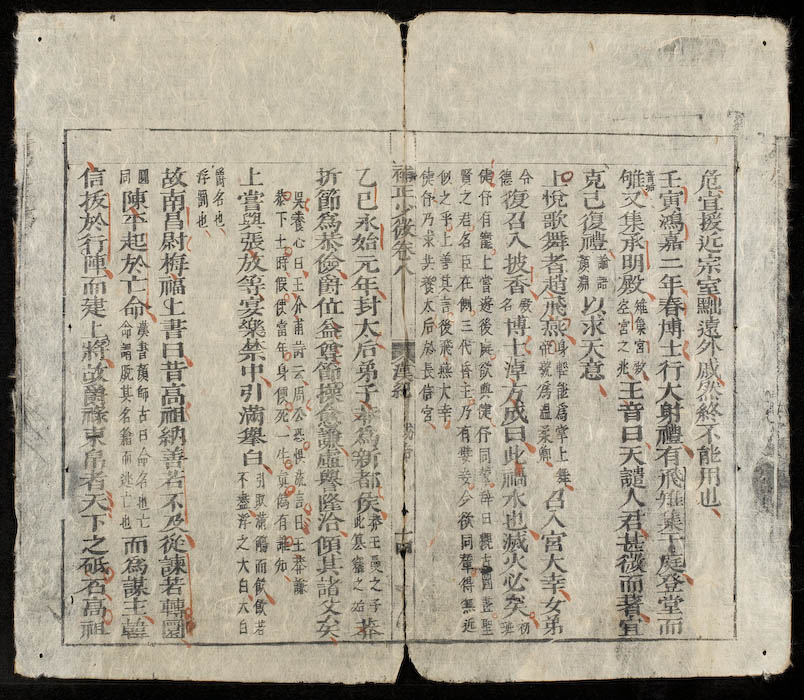 危宜援近宗室黜遠外戚然終不能用也
壬寅鴻嘉二年春博士行大射禮有飛雉集于庭登堂而
雊音姤又集承明殿雉集宮殿空宮之兆王音曰天譴人君甚微而著宜
克己復禮論語顏淵以求天意
上悅歌舞者趙飛燕身輕能爲掌上舞號爲溫柔鄉召入宮大幸女弟
合德復召入披香殿名博士淖方成曰此禍水也滅火必矣初班
倢伃有寵上嘗遊後庭欲與倢伃同輦辭曰觀古圖畫聖
賢之君名臣在側三代末主乃有嬖妾今欲同輦得無近
似之乎上善其言後飛燕大幸
倢伃乃求共養太后於長信宮
補正少微卷八 漢紀 成帝 十四
乙巳永始元年封太后弟子莽爲新都侯莽王曼之子此篡竊之始莽
折節爲恭儉爵位益尊節操愈謙虛譽隆洽傾其諸父矣
吳養心曰王介甫詩云周公恐惧流言日王莽謙
恭下士時假使當年身便死一生真僞有誰知
上嘗與張放等宴樂禁中引滿舉白引取滿觴而飲飲若不盡浮之大白大白
爵名也浮罰也
故南昌尉梅福上書曰昔高祖納善若不及從諫若轉圜
圓同陳平起於亡命漢書顏師古曰命名也亡命謂脫其名籍而逃亡也而爲謀主韓
信拔於行陣而建上將故爵祿束帛者天下之砥石高祖